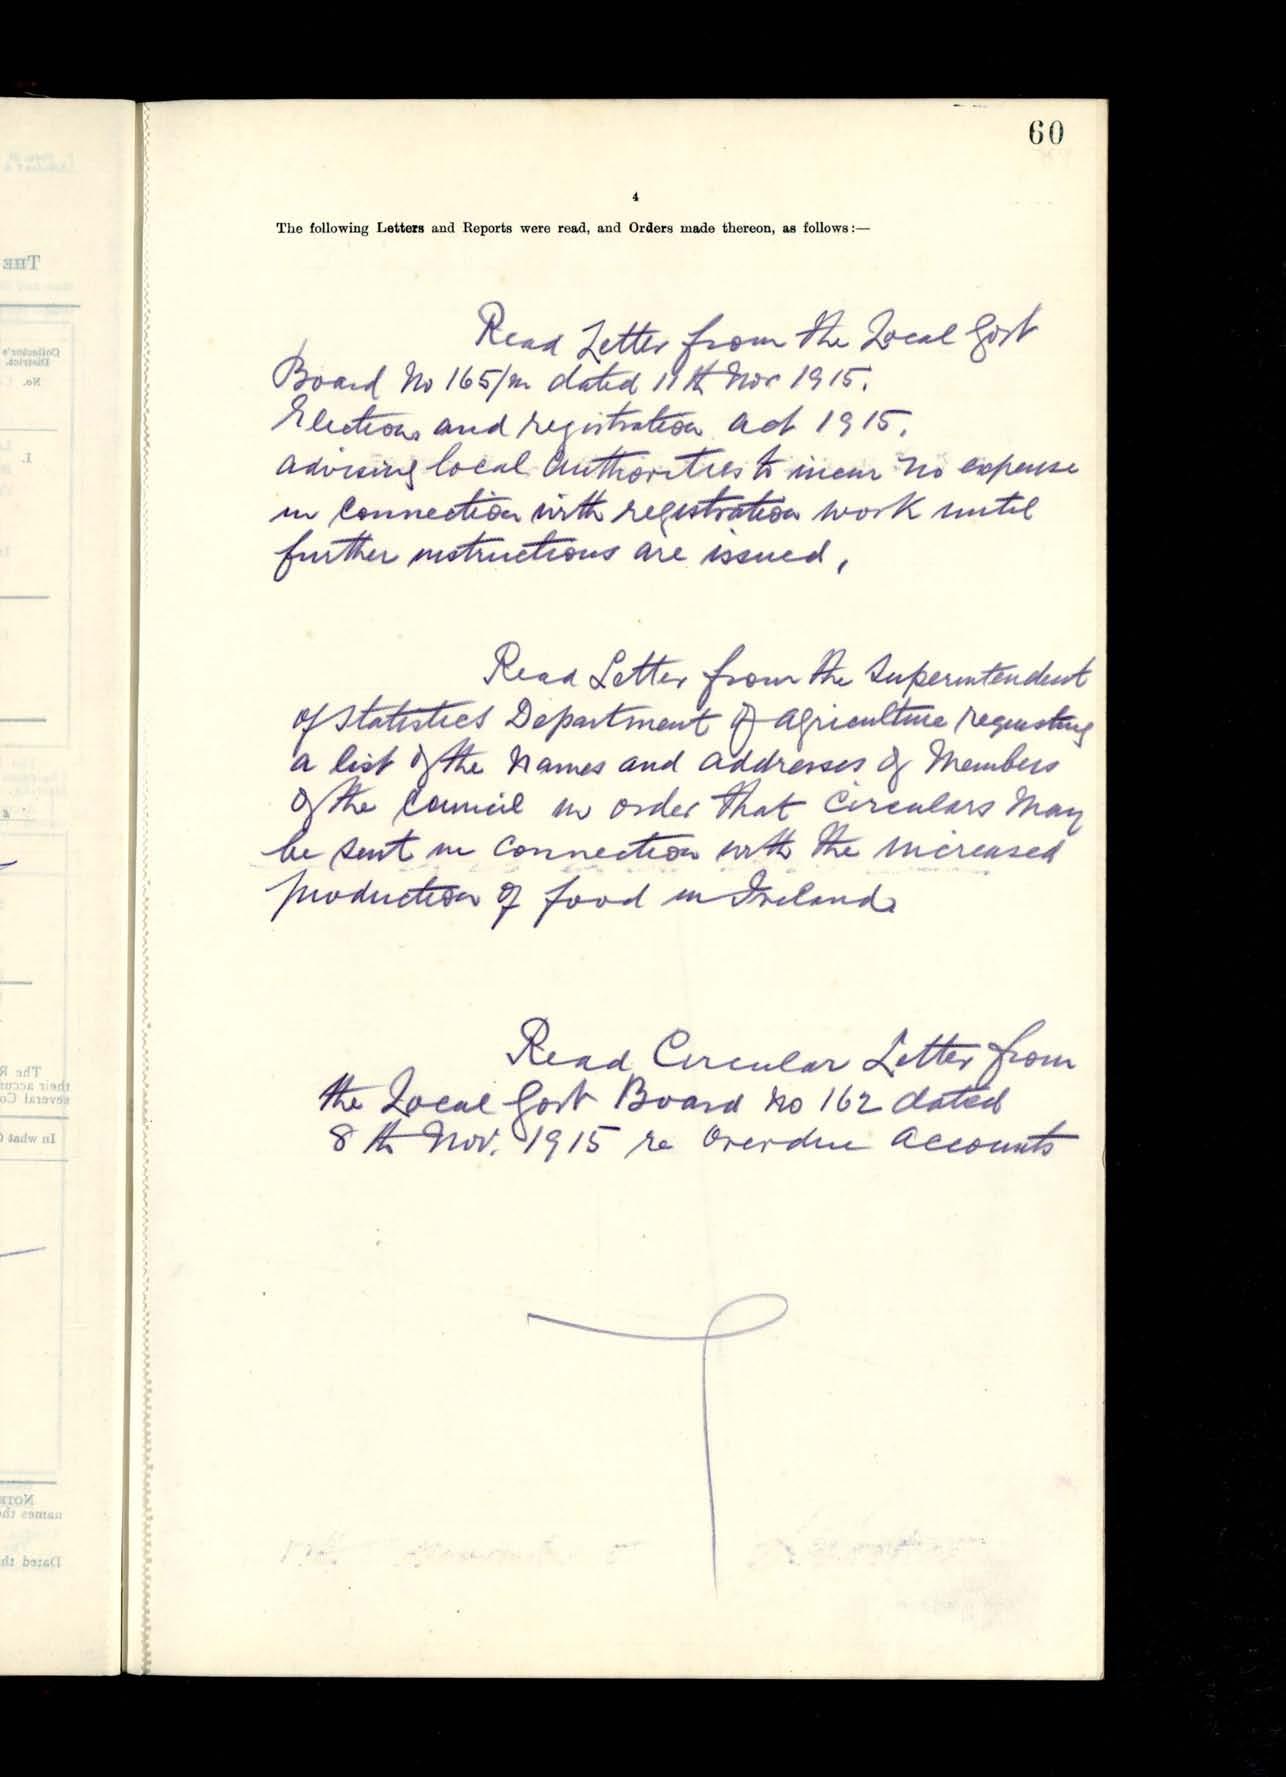 60
4
The following Letters and Reports were read, and Orders made thereon, as follows:—
Read Letter from the Local Govt
Board No 165/m dated 11th Nov 1915.
Elections and registration act 1915.
advising local authorities to incur no expense
in connection with registration work until
further instructions are issued.
Read Letter from the Superintendent
of Statistics Department of agriculture requesting
a list of the names and addresses of Members
of the Council in order that circulars may
be sent in connection with the increased
production of food in Ireland.
Read Circular Letter from
the Local Govt Board no 162 dated
8th Nov. 1915 re overdue accounts